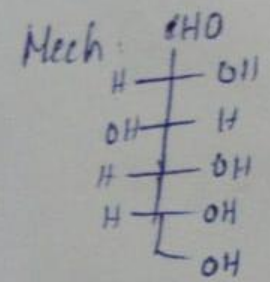 Mech. CHO
H OH
OH H
H OH
H OH
OH